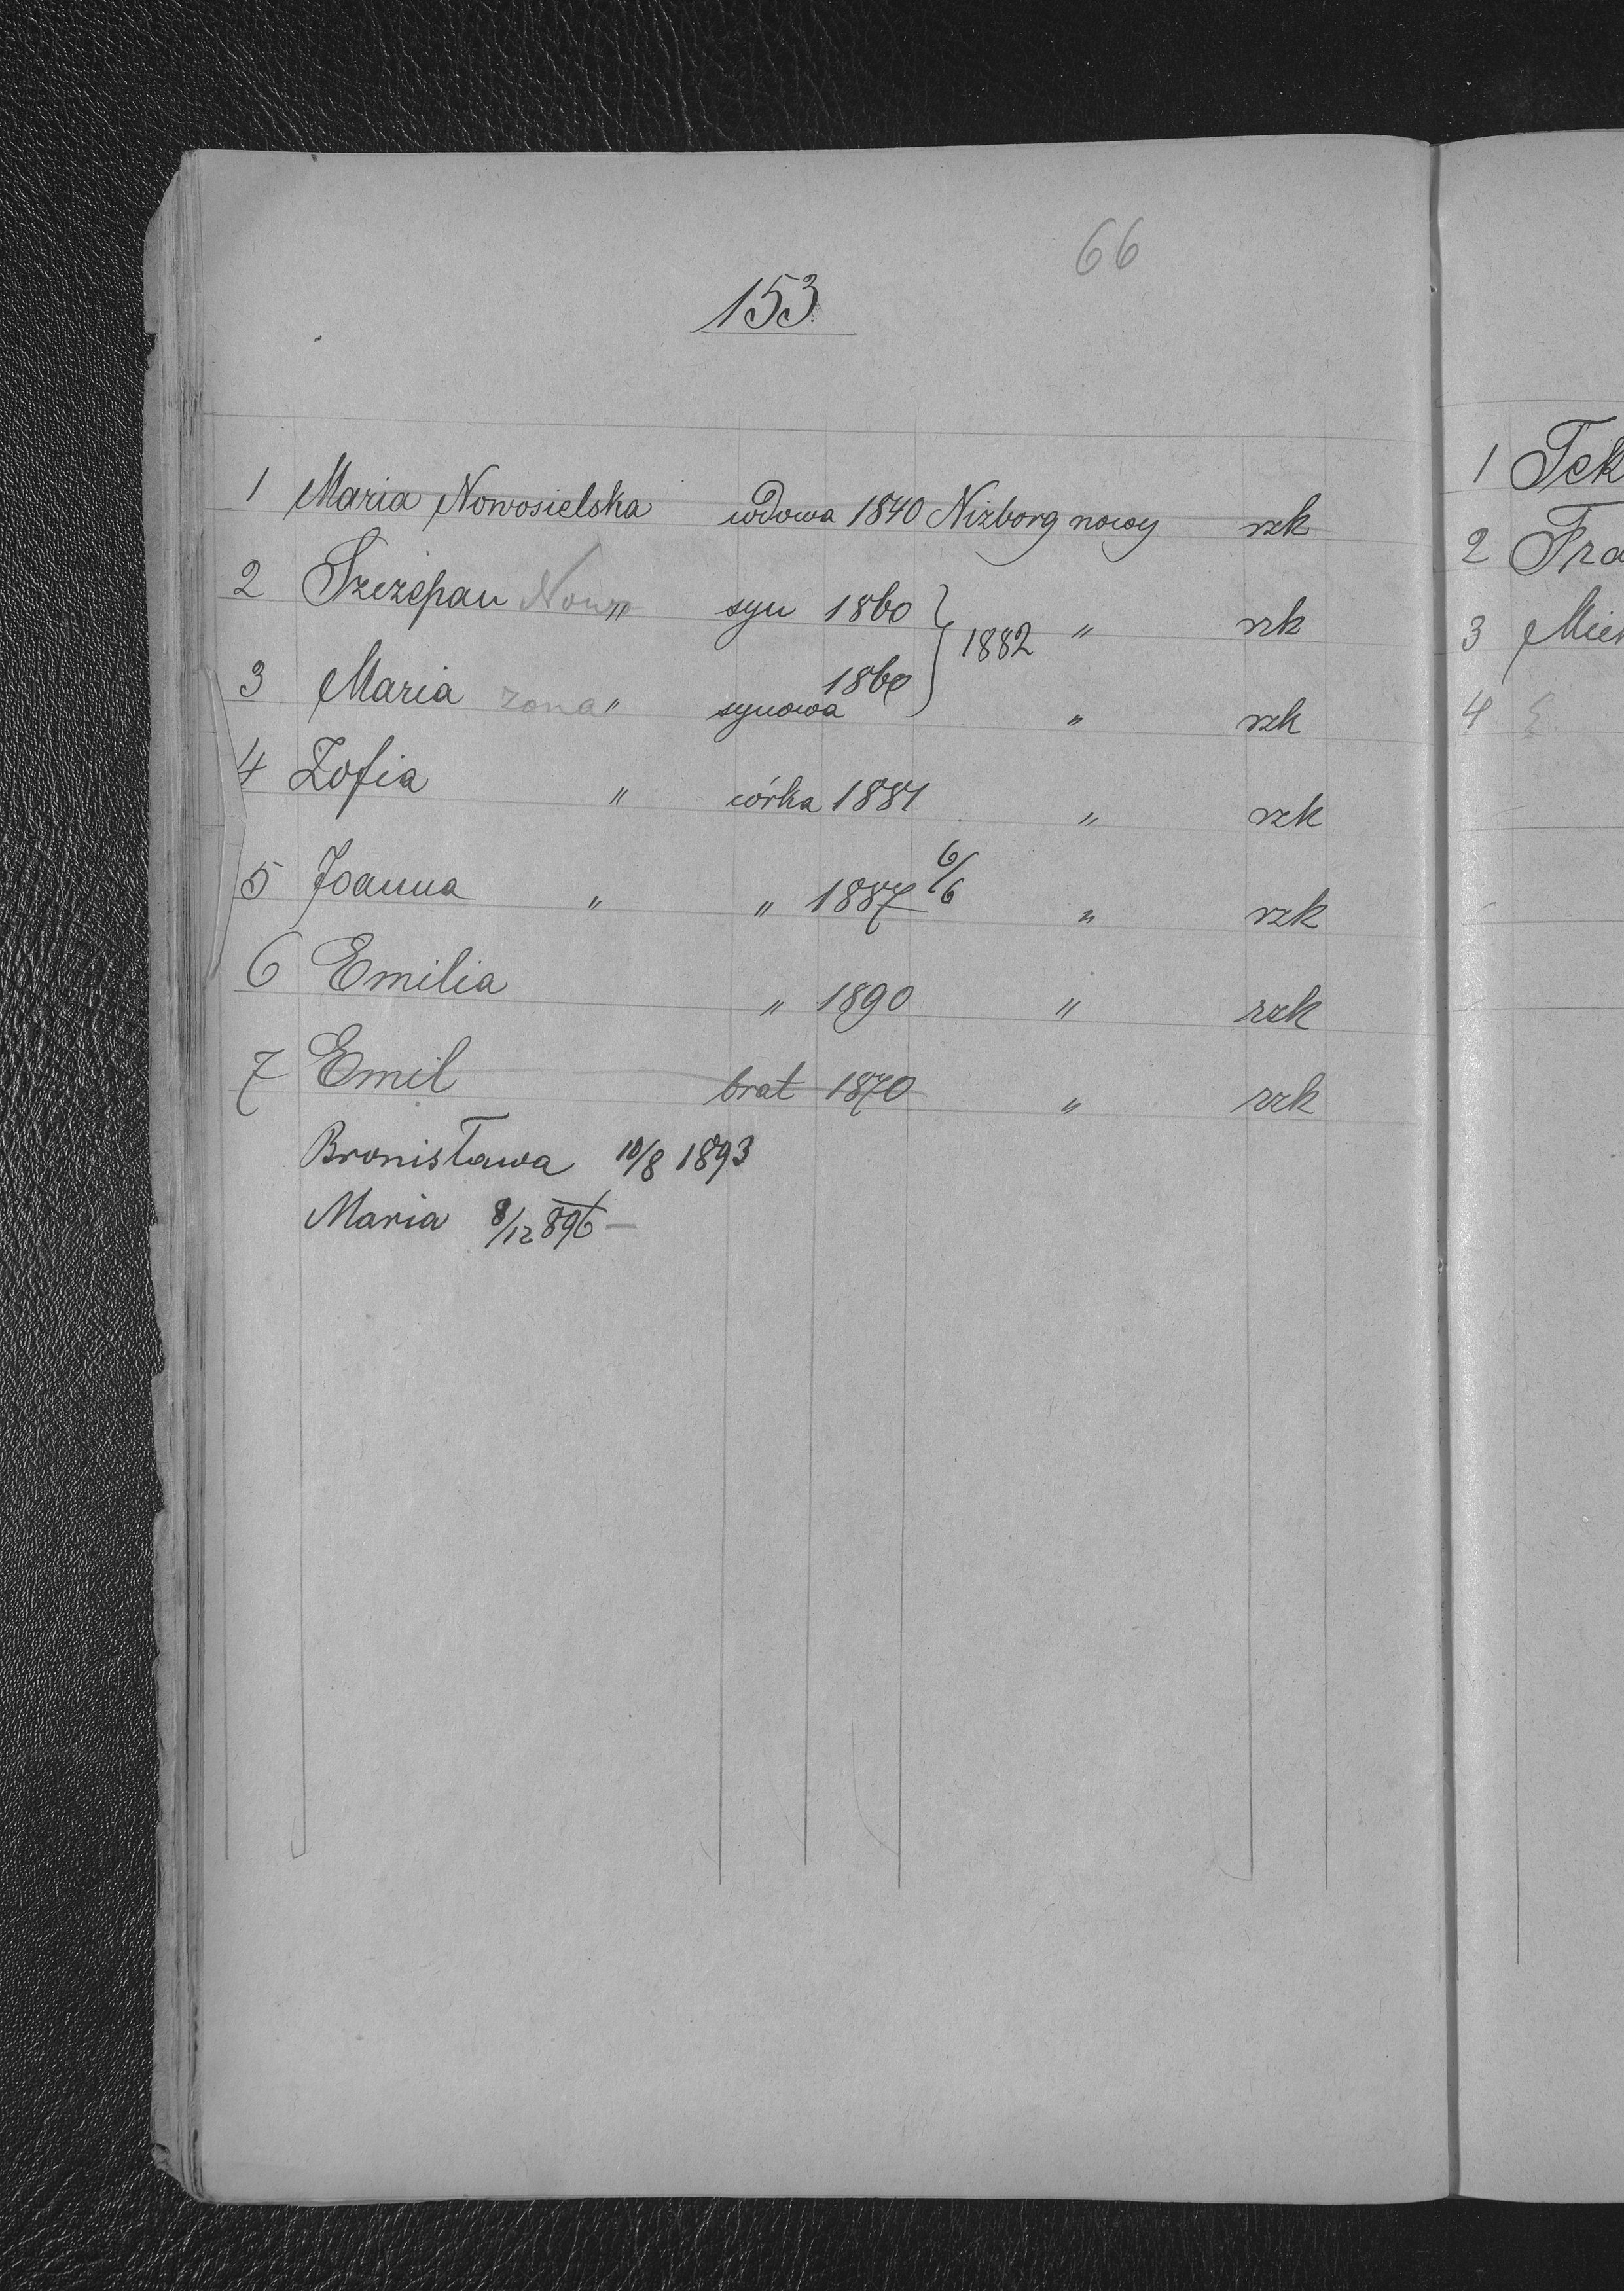 66
153
1 Maria Nowosielska wdowa 1840 Nizborg nowy rzk
2 Szczepan Nowo " syn 1860 } 1882 " rzk
3 Maria zona " synowa 1860 " rzk
4 Zofia " córka 1884 " rzk
5 Joanna " " 1887 6/6 " rzk
6 Emilia " 1890 " rzk
7 Emil brat 1870 " rzk
Bronisława 10/8 1893
Maria 8/12 896 —
1 Tek
2 Fra
3 Mich
4